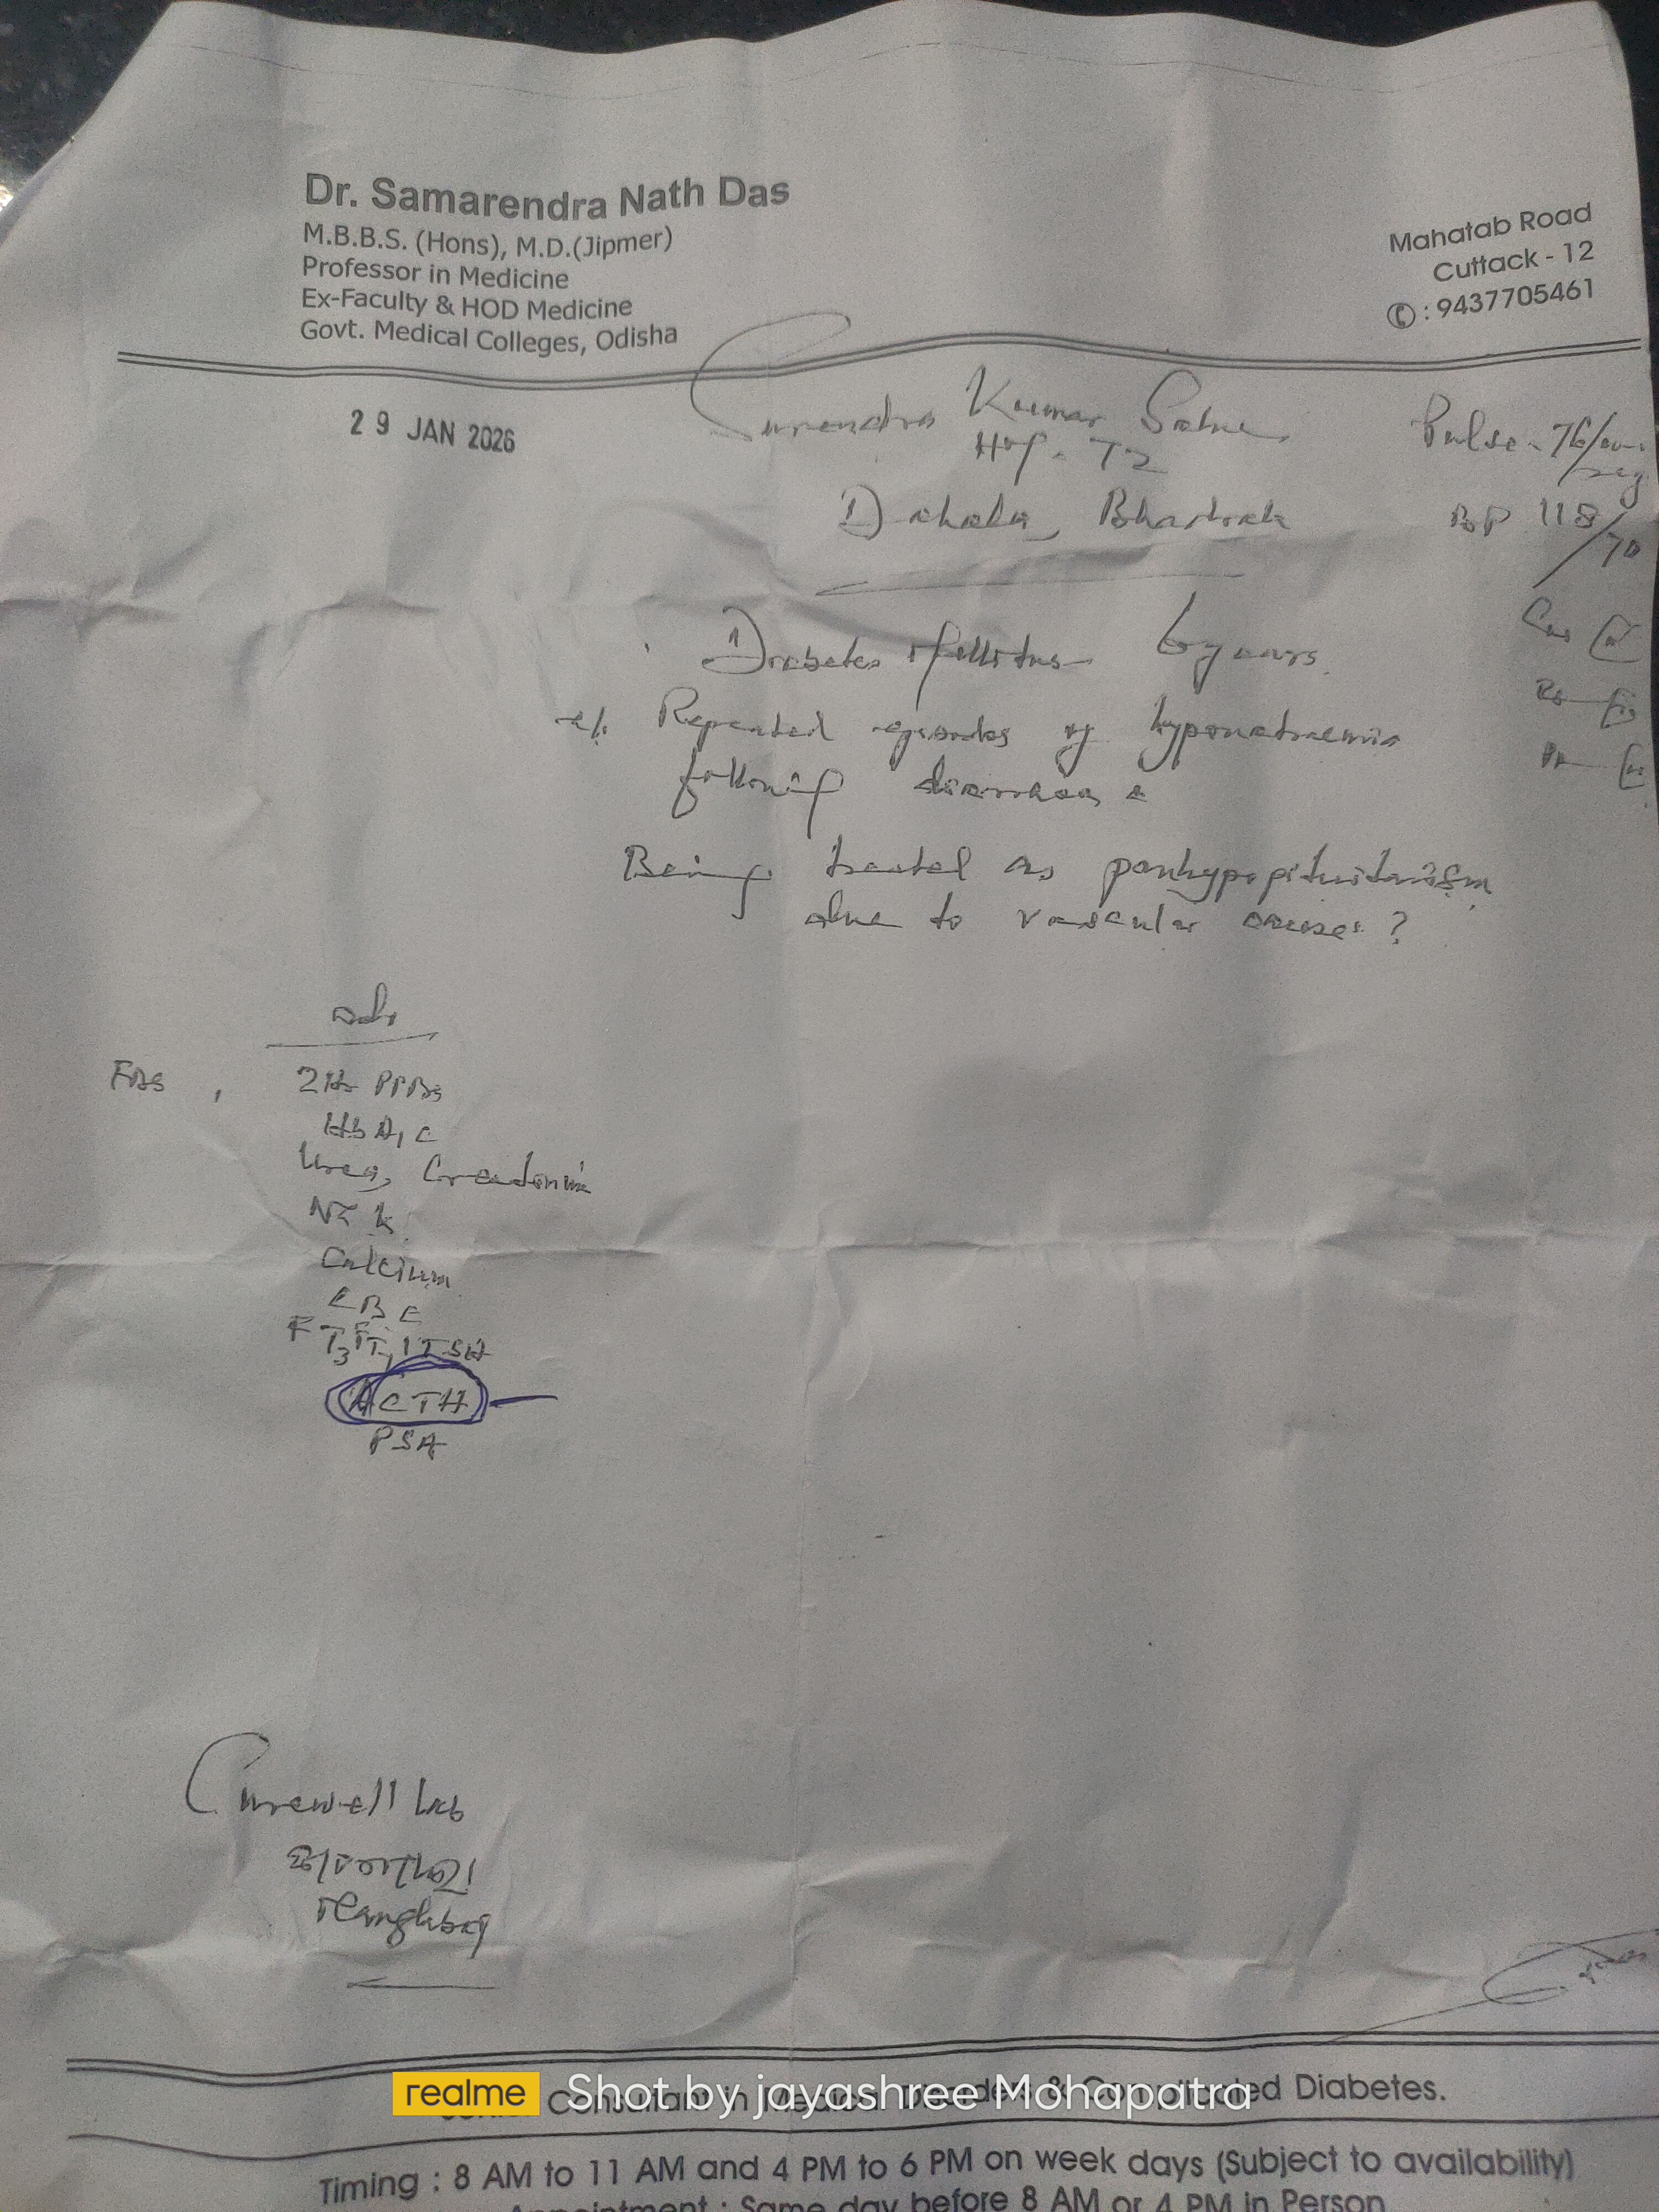 Dr. Samarendra Nath Das
M.B.B.S. (Hons), M.D.(Jipmer)
Professor in Medicine
Ex-Faculty & HOD Medicine
Govt. Medical Colleges, Odisha
Mahatab Road
Cuttack - 12
: 9437705461
29 JAN 2026
Surendra Kumar
Pulse - 76/
BP 118/70
Diabetes Mellitus 6 years.
Repeated episodes of hyponatraemia
following diarrhoea
Being treated as panhypopituitarism
due to vascular cause?
FBS, 2Hr PPBS
HbA1C
Urea, Creatinine
Na K
Calcium
CBC
FT3 FT4 TSH
ACTH
PSA
Curewell Lab
Manglabag
realme Shot by jayashree Mohapatra
Consultant in Diabetes.
Timing : 8 AM to 11 AM and 4 PM to 6 PM on week days (Subject to availability)
Appointment : Same day before 8 AM or 4 PM in Person